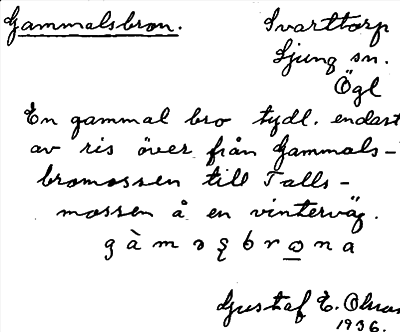 Gammalsbron. Svarttorp
Ljung sn.
Ögl
En gammal bro tydl. endast
av ris över från Gammals-
bromossen till Talls-
mossen å en vinterväg.
gàmɔʂbrǫna
Gustaf E.
1936.